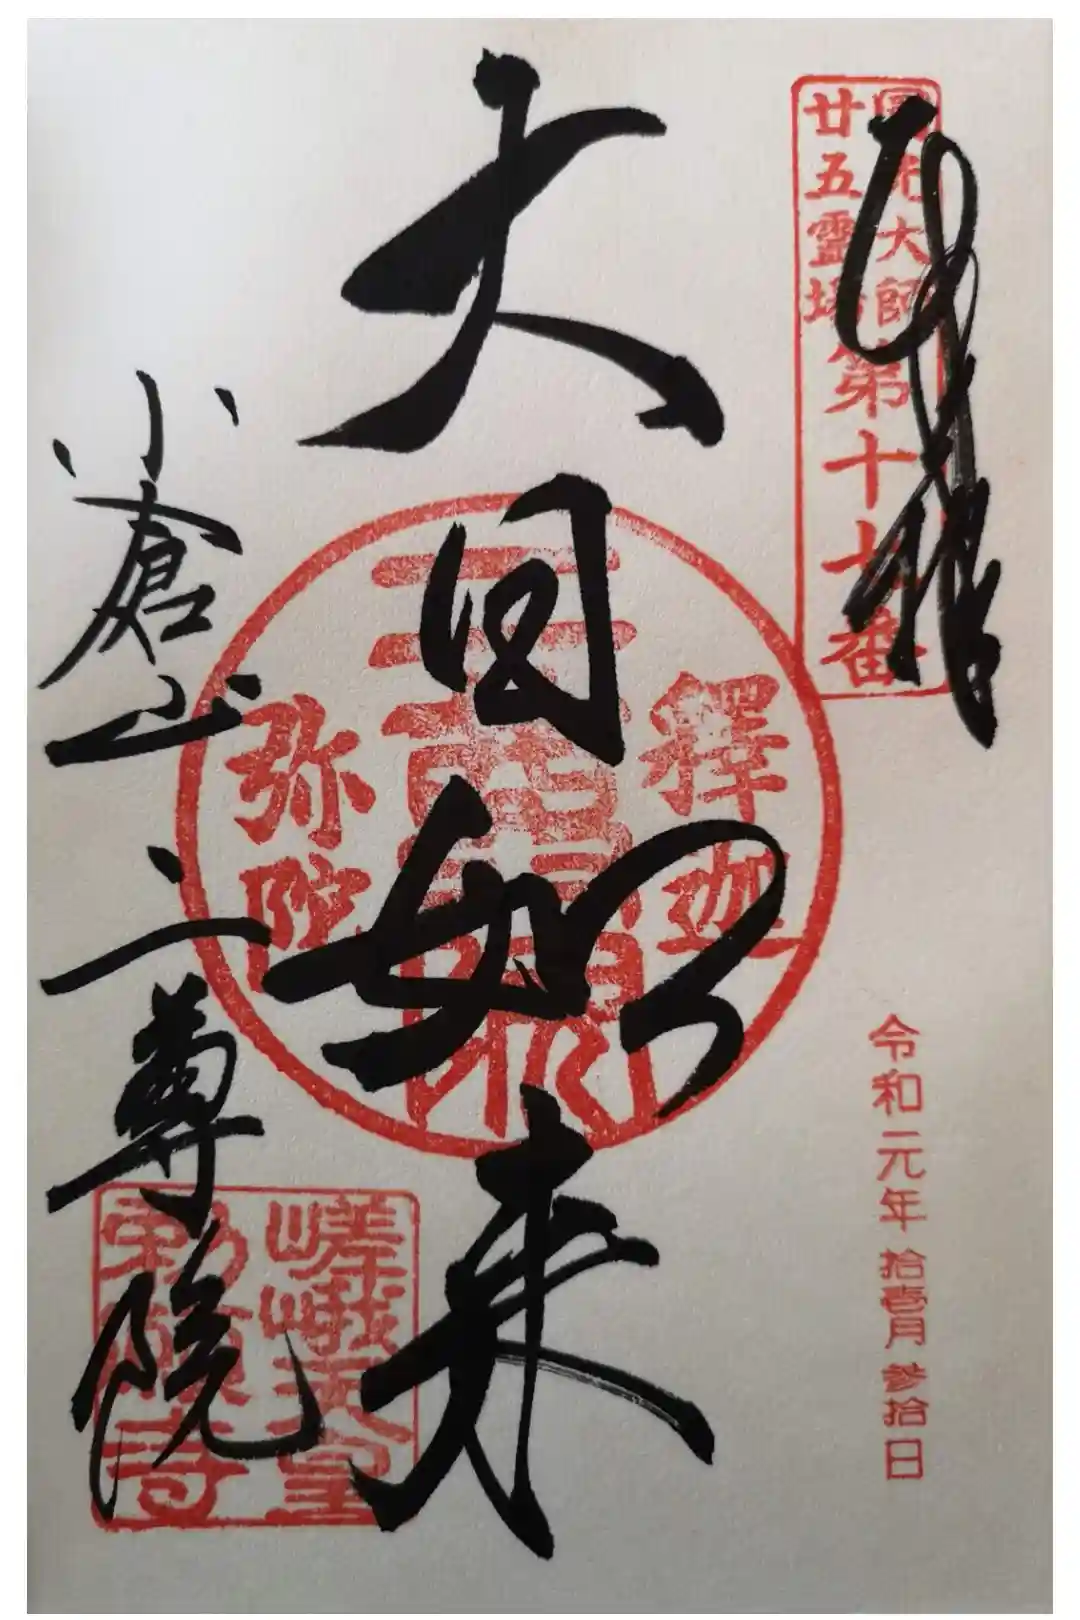 奉拝
圓光大師
廿五霊場
第十七番
令和元年拾壹月参拾日
大日如来
釋迦
弥陀
小倉山
二尊院
嵯峨天皇
勅願寺